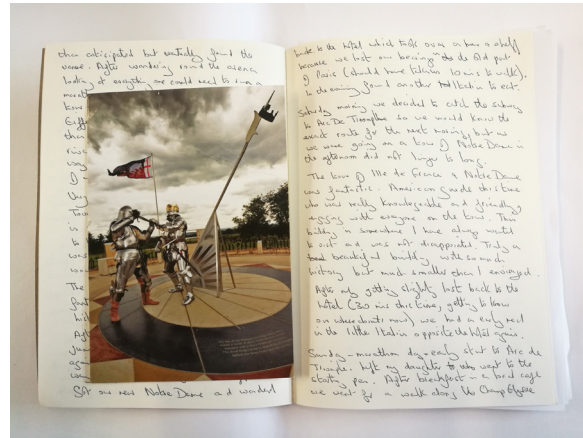 than anticipated but eventually found the
venue. After wandering round the arena
looking at everything we could need to run a
marath
know
Eiffe
than
rive
way
of
Ver
Tow
is
to
was
The
that
Aft
again
Sat on near Notre Dame and waited
back to the hotel which took over an hour & a half
because we lost our bearings the old part
of Paris (should have taken 10 mins to walk).
In the evening found another Italian to eat.
Saturday morning we decided to catch the subway
to Arc De Triomphe so we would know the
exact route for the next morning, but as
we were going on a tour of Notre Dame in
the afternoon did not linger to long.
The tour of Ille de France & Notre Dame
was fantastic. American guide christine
who was really knowledgable and friendly,
engaging with everyone on the tour. This
building is somewhere I have always wanted
to visit and was not disappointed. Truly a
beautiful building with so much
history but much smaller than I envisaged.
After only getting slightly lost back to the
hotel (30 mins this time, getting to know
our whereabouts now) we had an early meal
in the little Italian opposite the hotel again.
Sunday - marathon day - early start to Arc de
Triomphe. Left my daughter to who went to the
starting pen. After breakfast in a local cafe
we went for a walk along the Champ Elysee